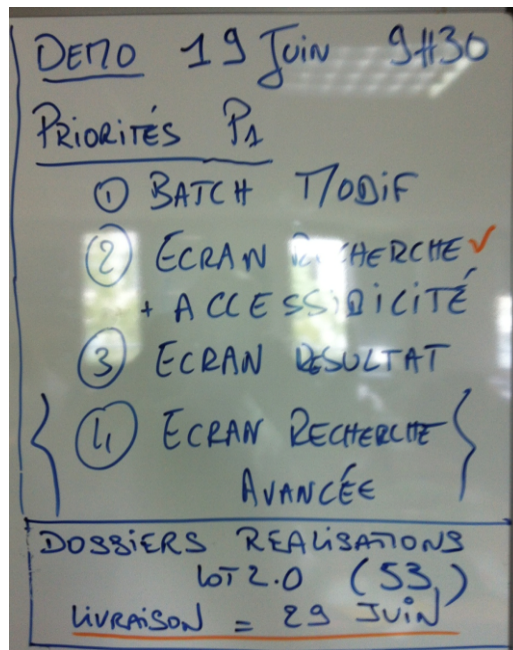 DEMO 19 JUIN 9H30
PRIORITÉS P1
① BATCH MODIF
② ECRAN RECHERCHE ✓
+ ACCESSIBILITÉ
③ ECRAN RESULTAT
{ ④ ECRAN RECHERCHE }
AVANCÉE
DOSSIERS REALISATIONS
LOT 2.0 (53)
LIVRAISON = 29 JUIN